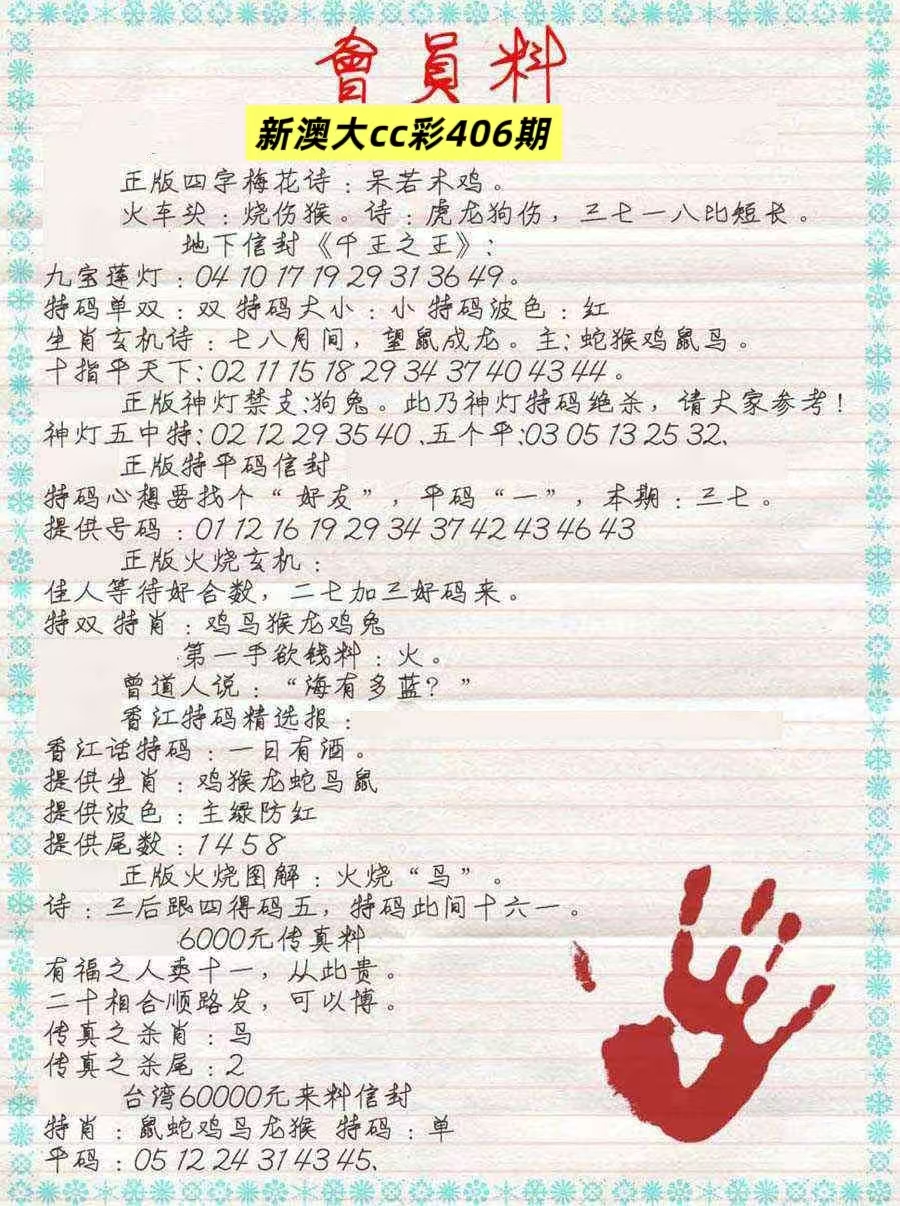 會員料
新澳大cc彩406期
正版四字梅花诗：呆若木鸡。
火车头：烧伤猴。诗：虎龙狗伤，三七一八比短长。
地下信封《千王之王》：
九宝莲灯：04 10 17 19 29 31 36 49。
特码单双：双 特码大小：小 特码波色：红
生肖玄机诗：七八月间，望鼠成龙。主：蛇猴鸡鼠鸟。
十指平天下：02 11 15 18 29 34 37 40 43 44。
正版神灯禁支：狗兔。此乃神灯特码绝杀，请大家参考！
神灯五中特：02 12 29 35 40、五个平：03 05 13 25 32、
正版特平码信封
特码心想要找个“好友”，平码“一”，本期：三七。
提供号码：01 12 16 19 29 34 37 42 43 46 43
正版火烧玄机：
佳人等待好合数，二七加三好码来。
特双 特肖：鸡鸟猴龙鸡兔
第一手欲钱料：火。
曾道人说：“海有多蓝？”
香江特码精选报：
香江话特码：一日有酒。
提供生肖：鸡猴龙蛇鸟鼠
提供波色：主绿防红
提供尾数：1 4 5 8
正版火烧图解：火烧“鸟”。
诗：三后跟四得码五，特码此间十六一。
6000元传真料
有福之人卖十一，从此贵。
二十相合顺路发，可以博。
传真之杀肖：鸟
传真之杀尾：2
台湾60000元来料信封
特肖：鼠蛇鸡鸟龙猴 特码：单
平码：05 12 24 31 43 45、